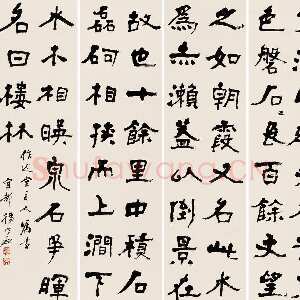 色磐石百餘步望
之如朝霞又名此水
為赤瀨蓋以倒景在
故也十餘里中積石
磊砢相挾而上澗下
水木相暎泉石爭暉
名曰樓林
宜都
Shufawang.CN